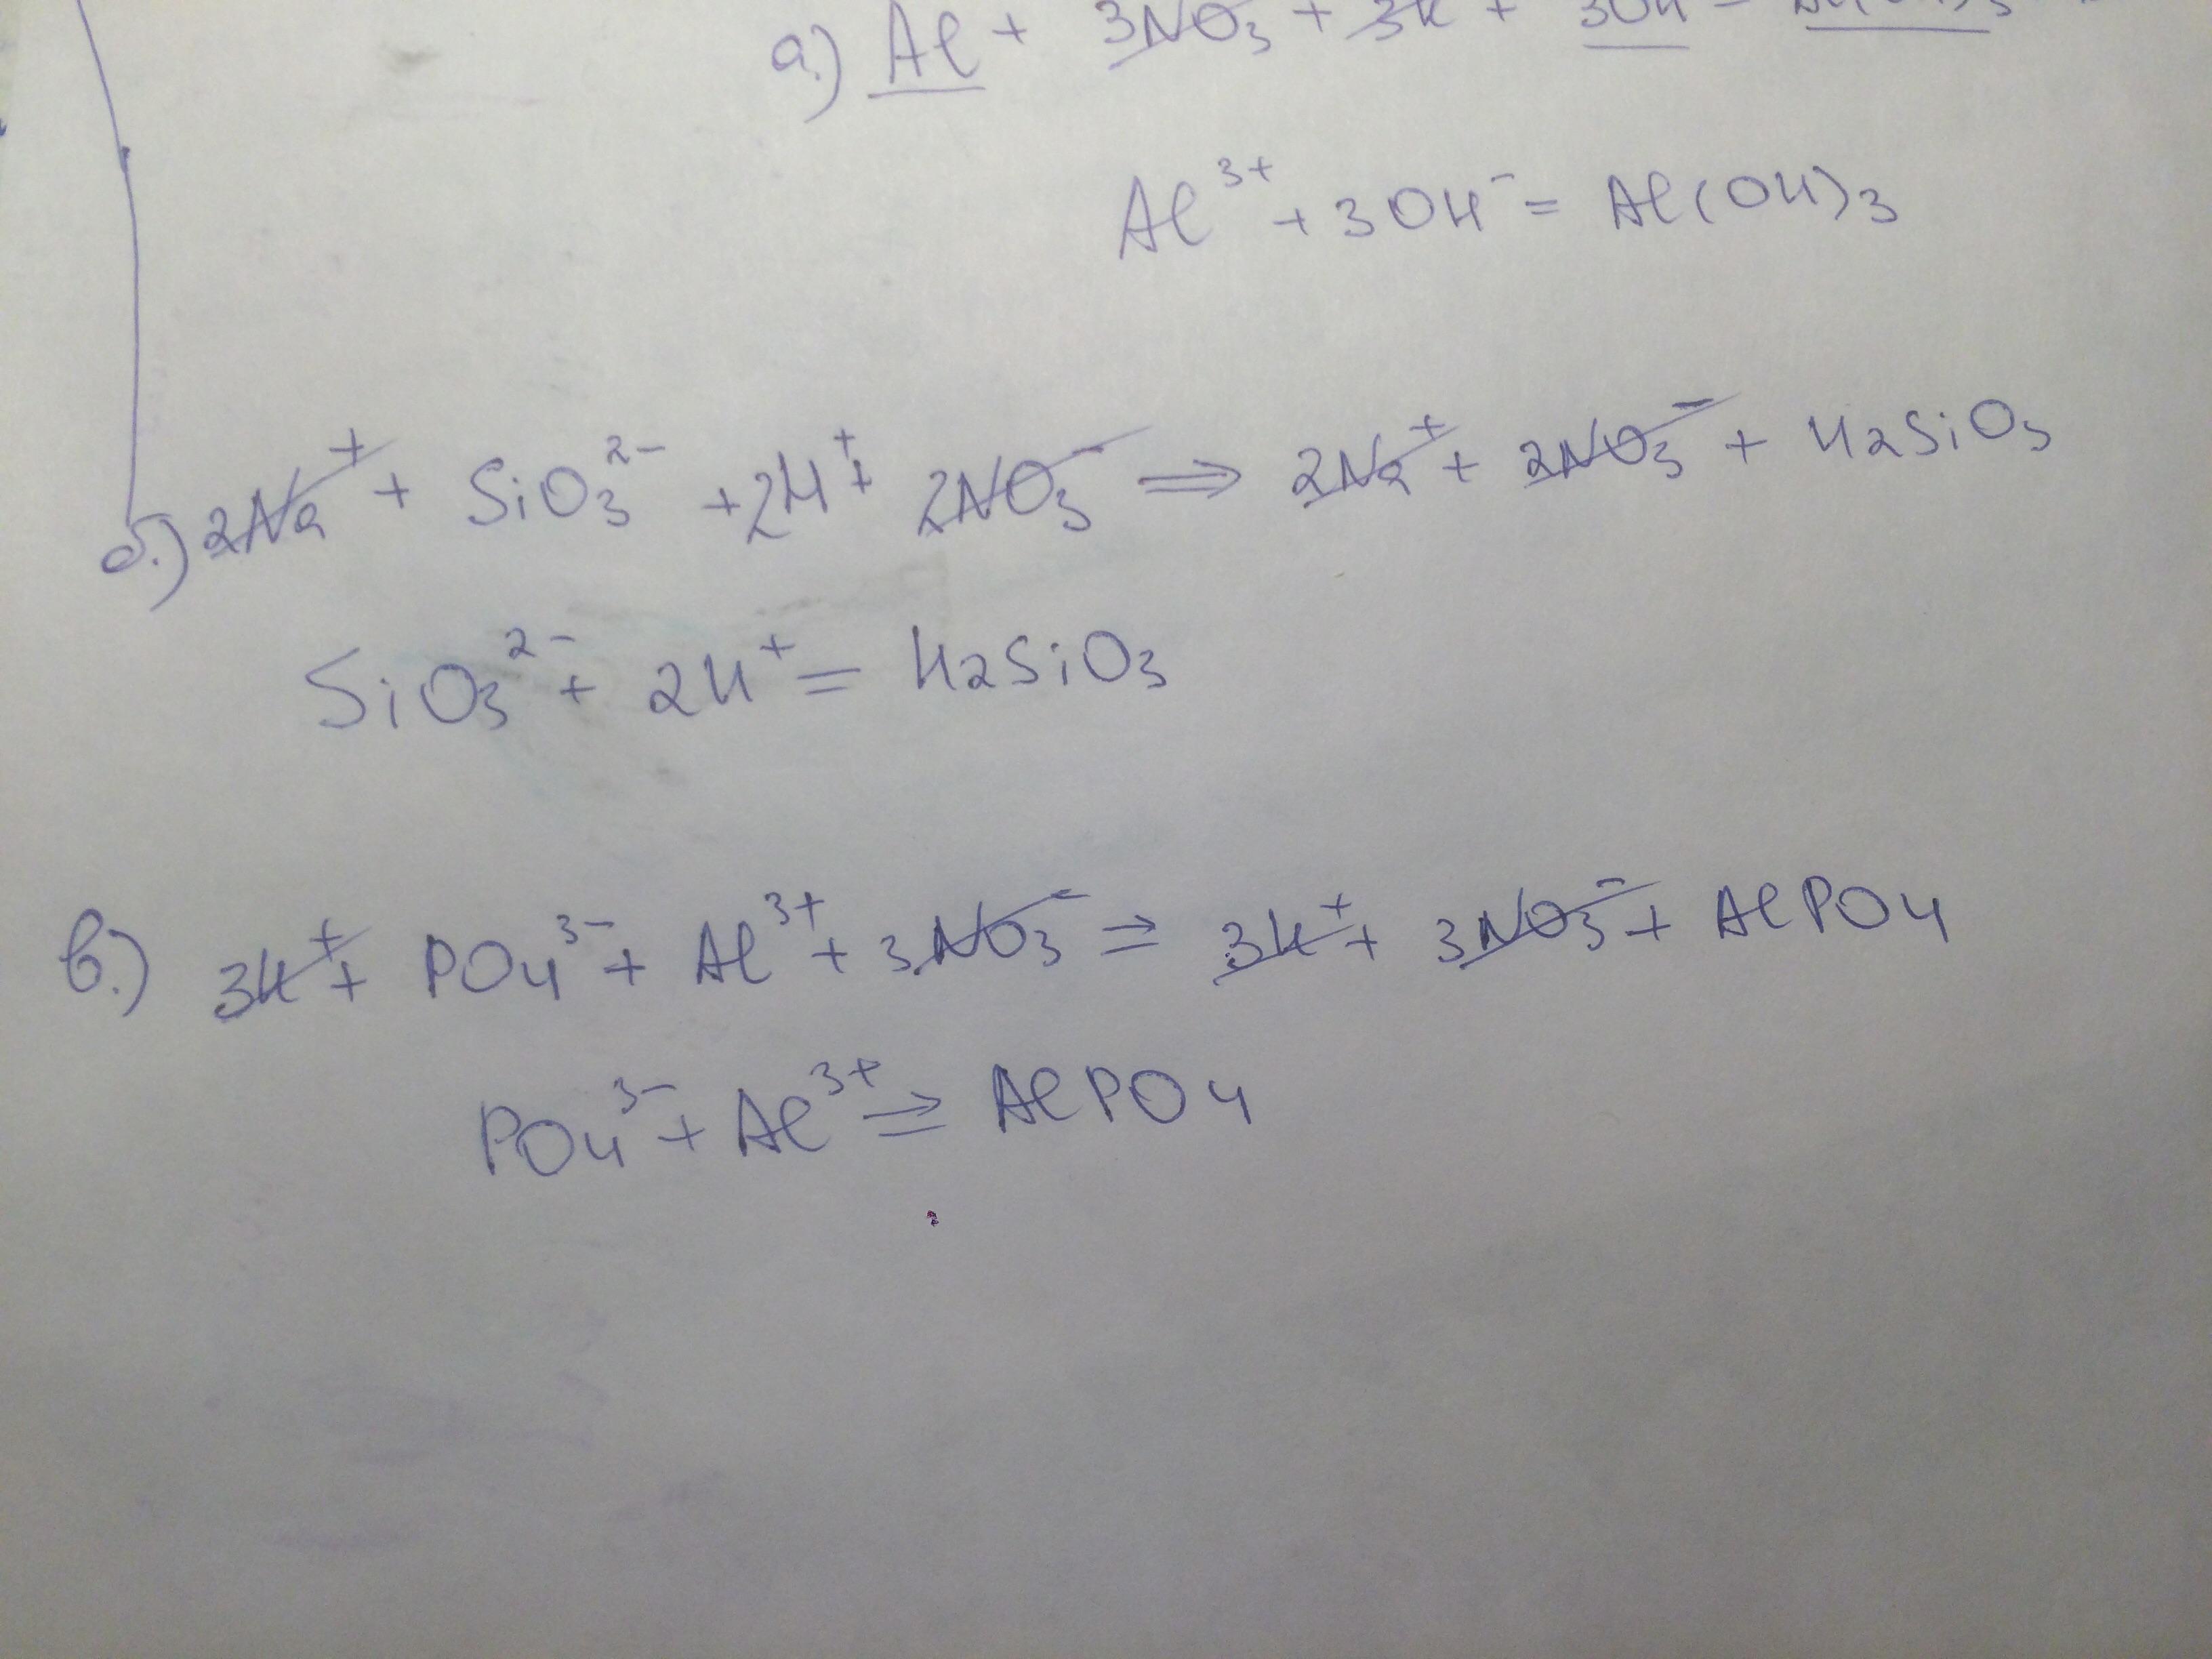 а.) Al + 3NO3 + 3K + 3OH
Al³⁺ + 3OH⁻ = Al(OH)3
б.) 2Na⁺ + SiO3²⁻ + 2H⁺ + 2NO3⁻ ⇒ 2Na⁺ + 2NO3⁻ + H2SiO3
SiO3²⁻ + 2H⁺ = H2SiO3
в.) 3K⁺ + PO4³⁻ + Al³⁺ + 3NO3⁻ ⇒ 3K⁺ + 3NO3⁻ + AlPO4
PO4³⁻ + Al³⁺ ⇒ AlPO4